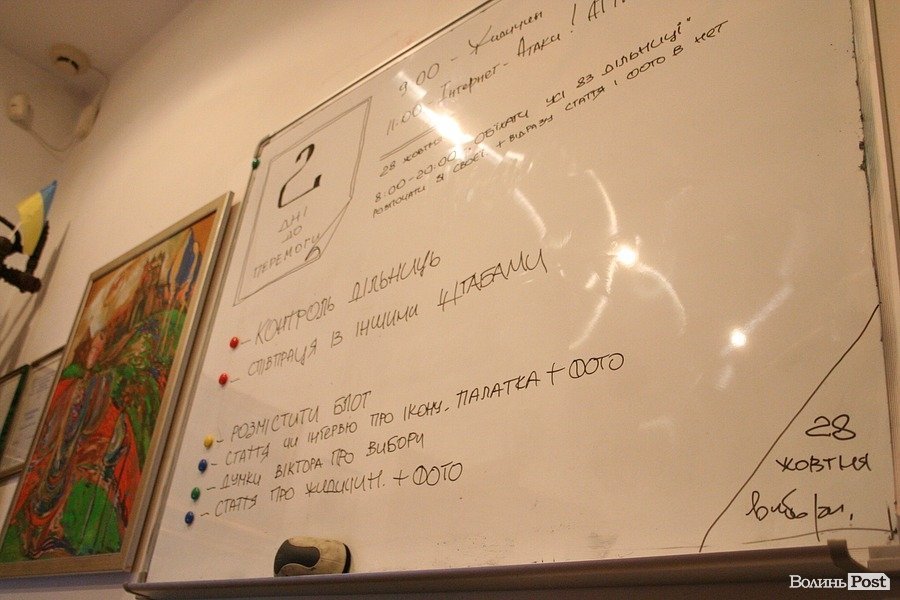 9:00 - Жидичин
11:00 Інтернет - Атаки!
28 жовтня
8:00-20:00. Обїхати усі 83 дільниці"
розпочати зі своєї + відразу стаття і фото в нет
2
ДНІ
ДО
ПЕРЕМОГИ
- КОНТРОЛЬ ДІЛЬНИЦЬ
- СПІВПРАЦЯ ІЗ ІНШИМИ ШТАБАМИ
- РОЗМІСТИТИ БЛОГ
- СТАТТЯ ЧИ ІНТЕРВЮ ПРО ІКОНУ. ПАЛАТКА + ФОТО
- ДУМКИ ВІКТОРА ПРО ВИБОРИ
- СТАТТЯ ПРО ЖИДИЧИН. + ФОТО
28
ЖОВТНЯ
вибори.
ВолиньPost